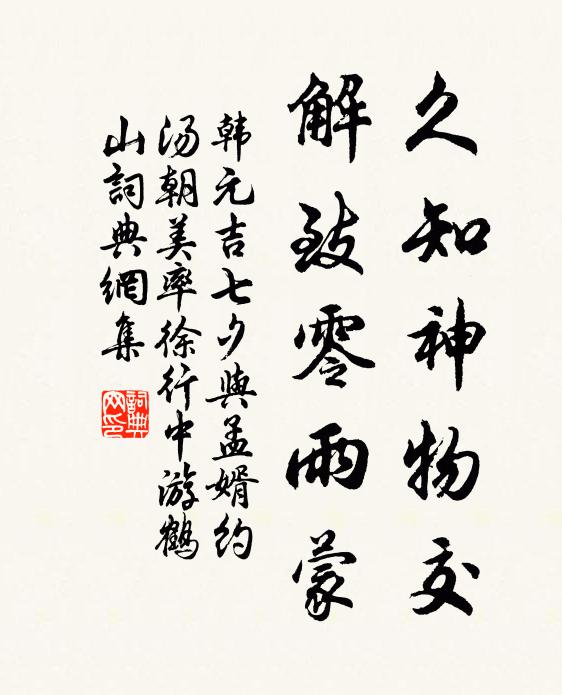 久知神物交
解致零雨蒙
韩元吉七夕與孟婿约
汤朝美率徐行中游鹤
山詞典網集
詞典网印